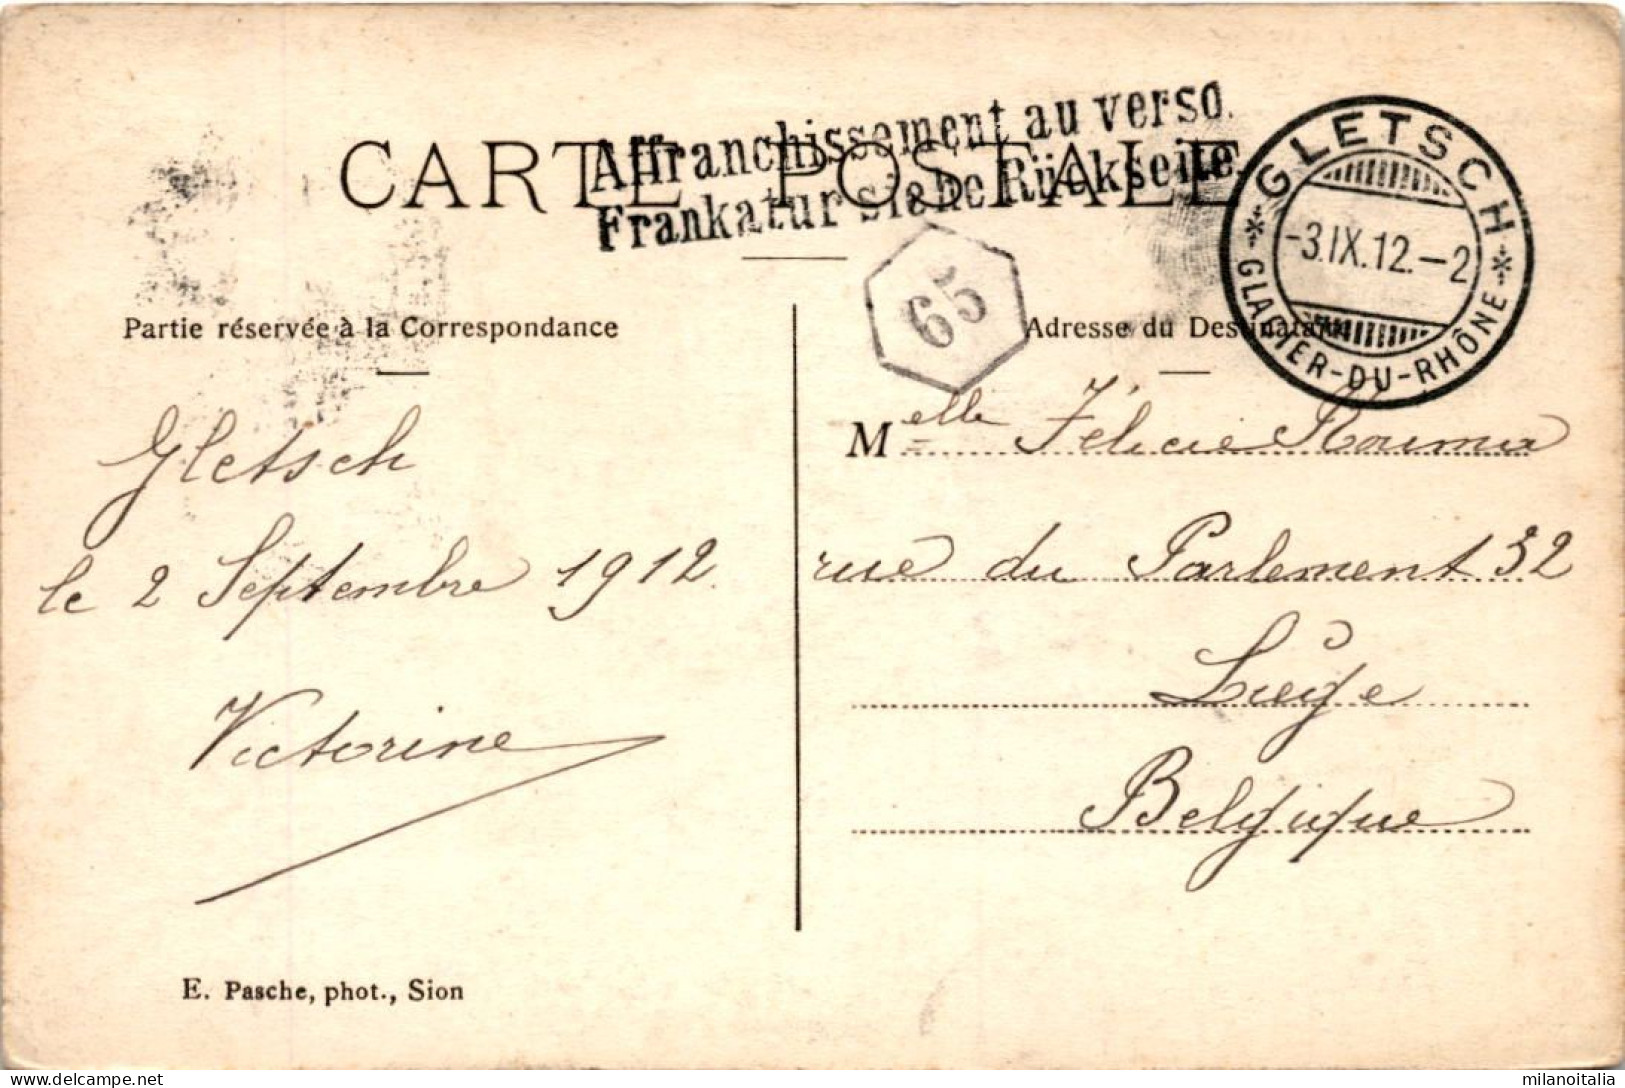 CARTE POSTALE
Affranchissement au verso.
Frankatur siehe Rückseite.
GLETSCH
-3.IX.12.-2
GLACIER-DU-RHÔNE
65
Partie réservée à la Correspondance
Gletsch
le 2 Septembre 1912.
Victorine
E. Pasche, phot., Sion
Adresse du Destinataire
Melle Félicie
rue du Parlement 32
Liége
Belgique
milanoitalia
www.delcampe.net